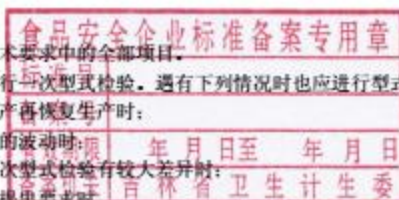 食品安全企业标准备案专用章
术要求中的全部项目。
行一次型式检验。遇有下列情况时也应进行型式
产再恢复生产时;
的波动时;
限 年 月 日至 年 月 日
次型式检验有较大差异时;
吉林省卫生计生委